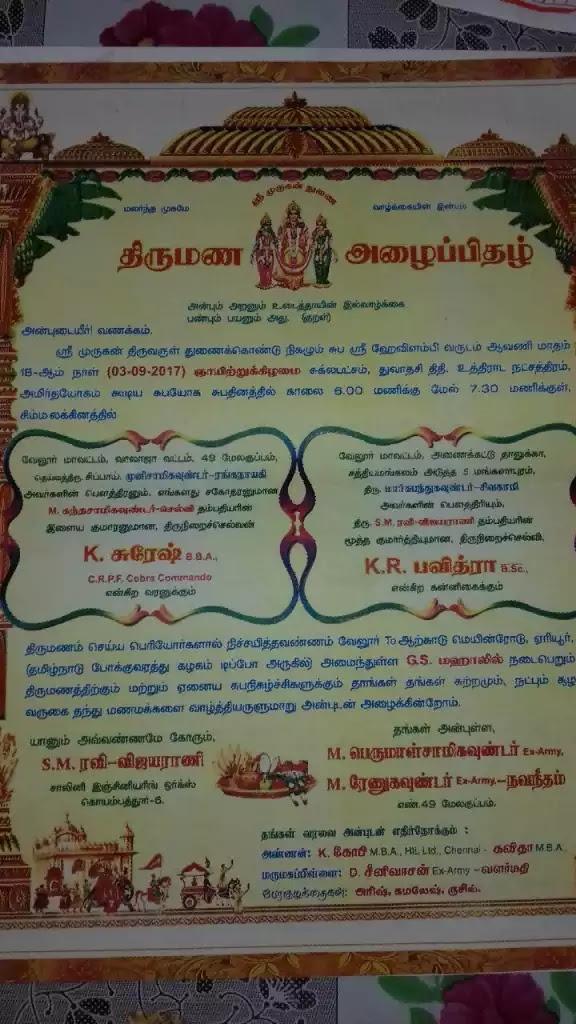 ஸ்ரீ முருகன் துணை
மலர்ந்த முகமே
வாழ்க்கையின் இன்பம்
திருமண அழைப்பிதழ்
அன்பும் அறனும் உடைத்தாயின் இல்வாழ்க்கை
பண்பும் பயனும் அது. (குறள்)
அன்புடையீர்! வணக்கம்.
ஸ்ரீ முருகன் திருவருள் துணைக்கொண்டு நிகழும் சுப ஸ்ரீ ஹேவிளம்பி வருடம் ஆவணி மாதம்
18-ஆம் நாள் (03-09-2017) ஞாயிற்றுக்கிழமை சுக்லபட்சம், துவாதசி திதி, உத்திராட நட்சத்திரம்,
அமிர்தயோகம் கூடிய சுபயோக சுபதினத்தில் காலை 6.00 மணிக்கு மேல் 7.30 மணிக்குள்,
சிம்ம லக்கினத்தில்
வேலூர் மாவட்டம், வாலாஜா வட்டம், 49 மேலகுப்பம்,
தெய்வத்திரு. சிப்பாய். முனிசாமிகவுண்டர்-ரங்கநாயகி
அவர்களின் பௌத்திரனும், எங்களது சகோதரனுமான
M. கந்தசாமிகவுண்டர்-செல்வி தம்பதியரின்
இளைய குமாரனுமான, திருநிறைச்செல்வன்
K. சுரேஷ் B.B.A.,
C.R.P.F. Cobra Commando
என்கிற வரனுக்கும்
வேலூர் மாவட்டம், அணைக்கட்டு தாலுக்கா,
சத்தியமங்கலம் அடுத்த 5 மங்களாபுரம்,
திரு. மார்கபந்துகவுண்டர்-சிவகாமி
அவர்களின் பௌத்திரியும்,
திரு. S.M. ரவி-விஜயராணி தம்பதியரின்
மூத்த குமார்த்தியுமான, திருநிறைச்செல்வி,
K.R. பவித்ரா B.Sc.,
என்கிற கன்னிகைக்கும்
திருமணம் செய்ய பெரியோர்களால் நிச்சயித்தவண்ணம் வேலூர் To ஆற்காடு மெயின்ரோடு, ஏரியூர்,
(தமிழ்நாடு போக்குவரத்து கழகம் டிப்போ அருகில்) அமைந்துள்ள G.S. மஹாலில் நடைபெறும்
திருமணத்திற்கும் மற்றும் ஏனைய சுபநிகழ்ச்சிகளுக்கும் தாங்கள் தங்கள் சுற்றமும், நட்பும் சூழ
வருகை தந்து மணமக்களை வாழ்த்தியருளுமாறு அன்புடன் அழைக்கின்றோம்.
யானும் அவ்வண்ணமே கோரும்,
S.M. ரவி-விஜயராணி
சாலினி இஞ்சினியரிங் ஒர்க்ஸ்
கொயம்பத்தூர்-6.
தங்கள் அன்புள்ள,
M. பெருமாள்சாமிகவுண்டர் Ex-Army,
M. ரேனுகவுண்டர் Ex-Army,-நவநீதம்
எண்.49 மேலகுப்பம்.
தங்கள் வரவை அன்புடன் எதிர்நோக்கும் :
அண்ணன்: K. கோபி M.B.A., HIL Ltd., Chennai - கவிதா M.B.A.,
மருமகப்பிள்ளை: D. சீனிவாசன் Ex-Army -வளர்மதி
பேரகுழந்தைகள்: அரிஷ், கமலேஷ், ருசில்.